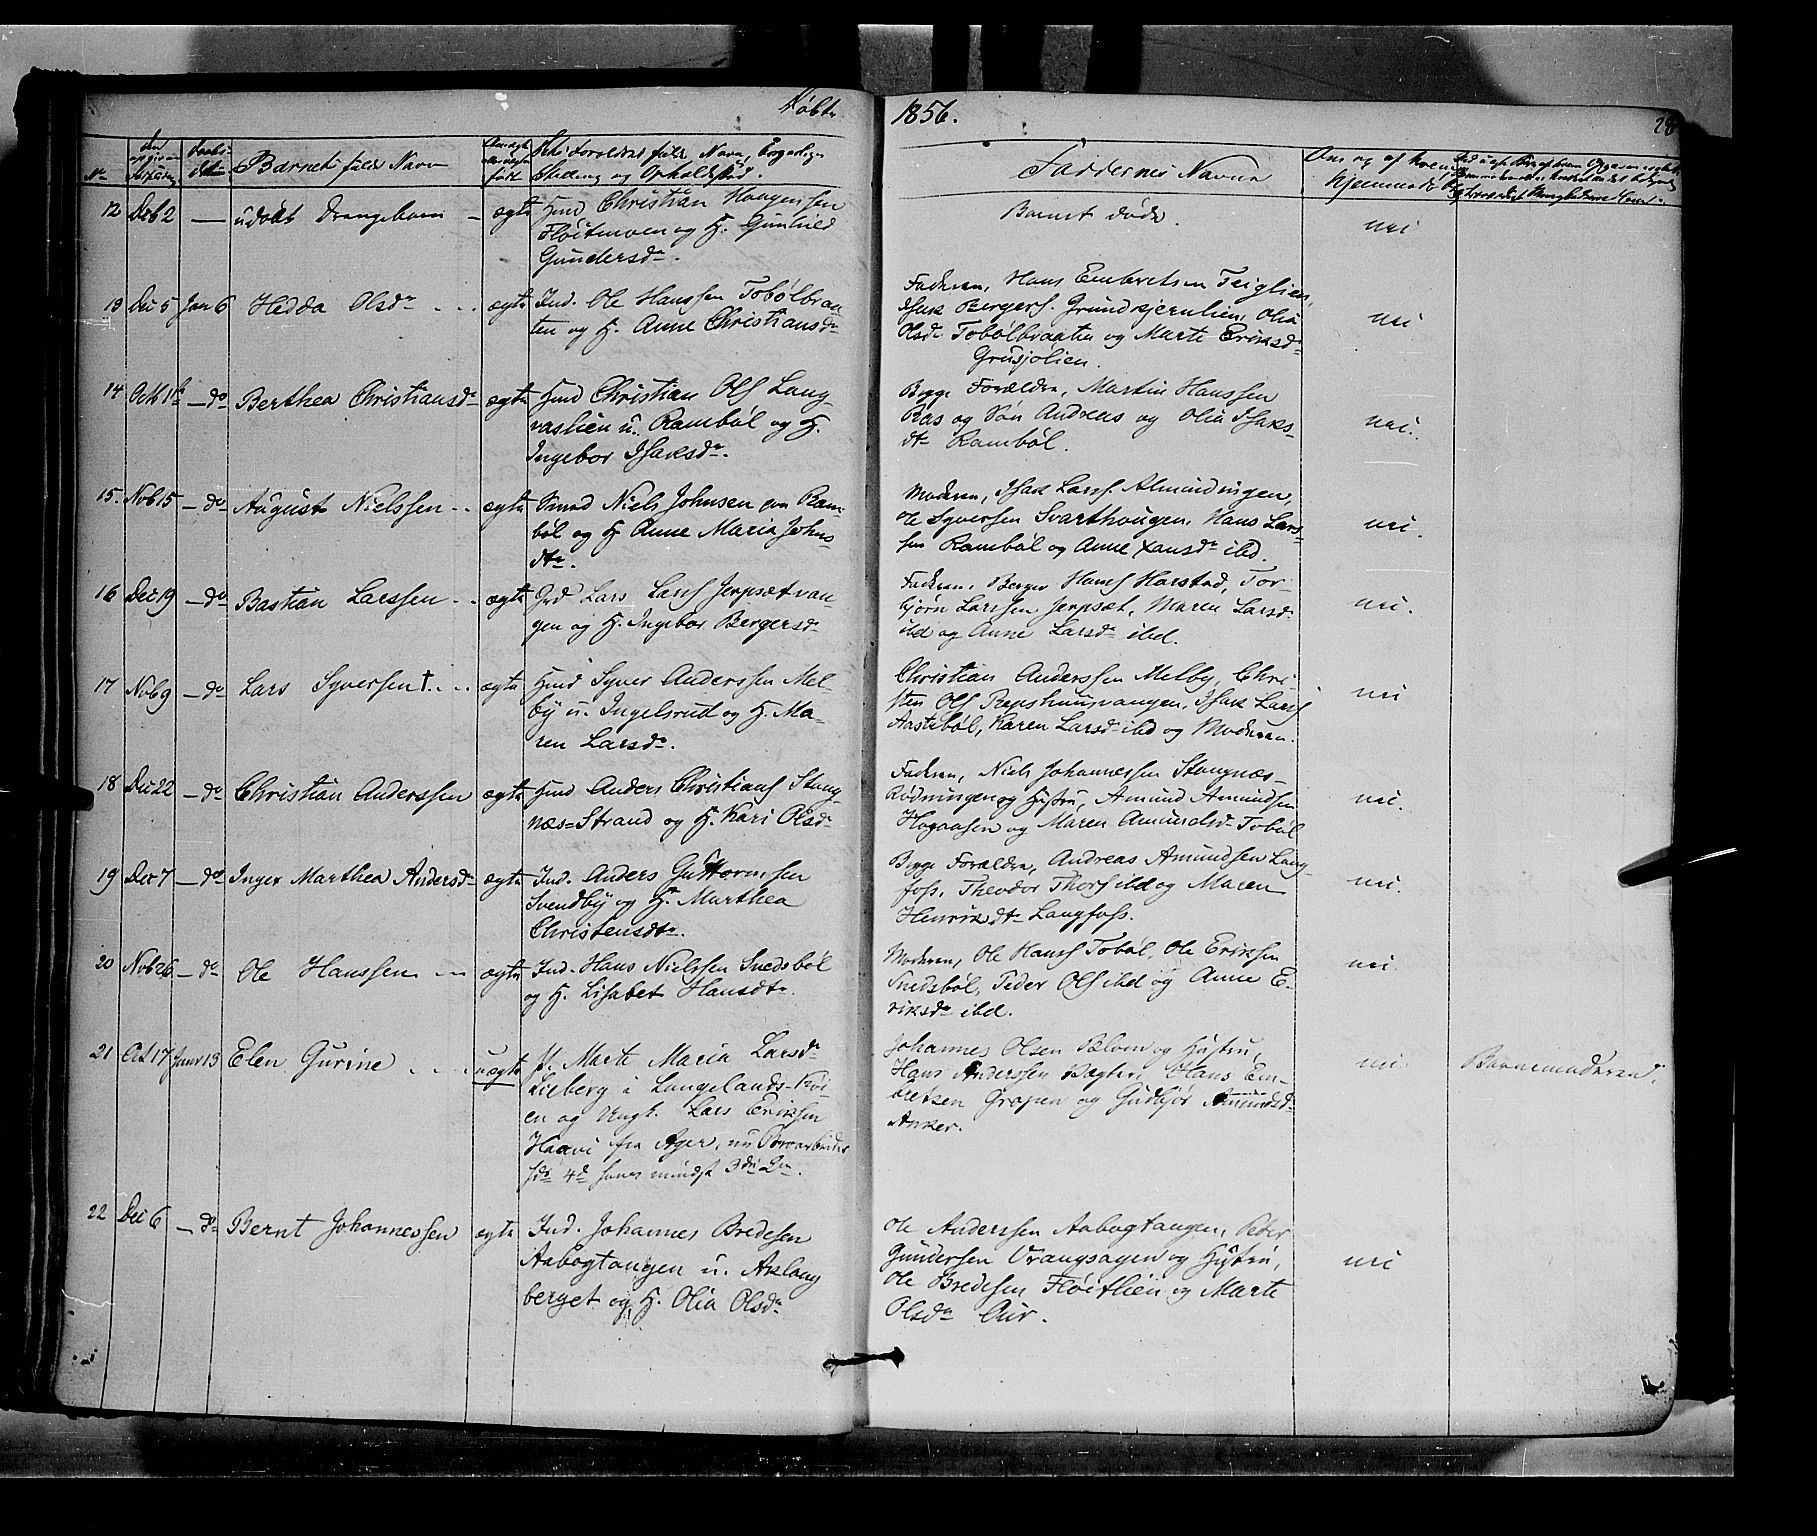 Døbte
1856.
28
No
Barnets fulde Navn
Faddernes Navne
12 Dec 2 — udøbt Drengebarn — ægte Hmd Christian Haagensen
Fløitmoen og H. Gunhild
Gundersdr.
Barnet døde.
nei
13 Dec 5 Jan 6 Hedda Olsdr ægte Ind. Ole Hanssen Tobølbraa-
ten og H. Anne Christiansdr
Faderen, Hans Embretsen Teiglien,
Isak Bergers. Grundtjernlien, Olia
Olsdr Tobølbraaten og Marte Eriksdr
Grusjølien.
nei
14 Octb 1 — do Berthea Christiansdr ægte Hmd Christian Ols Lang-
vaslien u. Rambøl og H.
Ingebor Isaksdr.
Begge Forældre, Martin Hanssen
Aas og Søn Andreas og Olia Isaks-
dtr Rambøl.
nei.
15. Nob 15 — do August Nielssen ægte Smed Niels Johnsen paa Ram-
bøl og H Anne Maria Johns-
dtr.
Moderen, Isak Larss. Almindingen,
Ole Syversen Svarthougen, Hans Lars-
sen Rambøl og Anne Hansdr ibd.
nei.
16 Dec 19 — do Bastian Larssen ægte Grd Lars Larss Jerpsetvan-
gen og H. Ingebor Bergersdr
Faderen, Berger Hanss Harstad, Tor-
bjørn Larssen Jerpset, Maren Larsdr
ibd og Anne Larsdr ibd.
nei.
17 Nob 9 — do Lars Syversen † ægte Hmd Syver Anderssen Mel-
by u. Ingelsrud og H. Ma-
ren Larsdr.
Christian Anderssen Melby, Chri-
sten Ols Repshuusvangen, Isak Larss
Aastebøl, Karen Larsdr ibd og Moderen.
nei
18 Dec 22 — do Christian Anderssen ægte Hmd Anders Christians Stang-
næs=Strand og H. Kari Olsdr
Faderen, Niels Johannessen Stangnæs-
Rødningen og Hustru, Amund Amundsen
Hogaasen og Maren Amundsdr Tobøl
nei.
19 Dec 7 — do Inger Marthea Andersdr ægte Ind. Anders Guttormsen
Svendby og H. Marthea
Christensdtr.
Begge Forældre, Andreas Amundsen Lang-
foss, Theodor Thorss ibd og Maren
Henriksdtr Langfoss.
nei.
20 Nob 26 — do Ole Hanssen ægte Ind. Hans Nielssen Snedsbøl
og H. Lisabet Hansdtr.
Moderen, Ole Hanss Tobøl, Ole Eriksen
Snedsbøl, Peder Ols ibd og Anne E-
riksdr ibd.
nei.
21 Oct 17 Janr 13 Elen Gurine uægte P. Marte Maria Larsdr
Lieberg i Langelands-Kvi-
en og Ungk. Lars Eriksen
Haavi fra Ager, nu Broarbeider
hds 4de hans mindst 3die Lm.
Johannes Olsen Blom og Hustru,
Hans Anderssen Bægter, Hans Em-
bretsen Gropen og Gudbjør Amundsdr
Anker.
nei.
Barnemoderen.
22 Dec 6 — do Bernt Johannessen ægte Ind. Johannes Bredesen
Aabogtangen u. Aklang-
berget og H. Olia Olsdr
Ole Anderssen Aabogtangen, Peder
Gundersen Vrangsagen og Hustru,
Ole Bredesen Fløitlien og Marte
Olsdr Aur.
nei